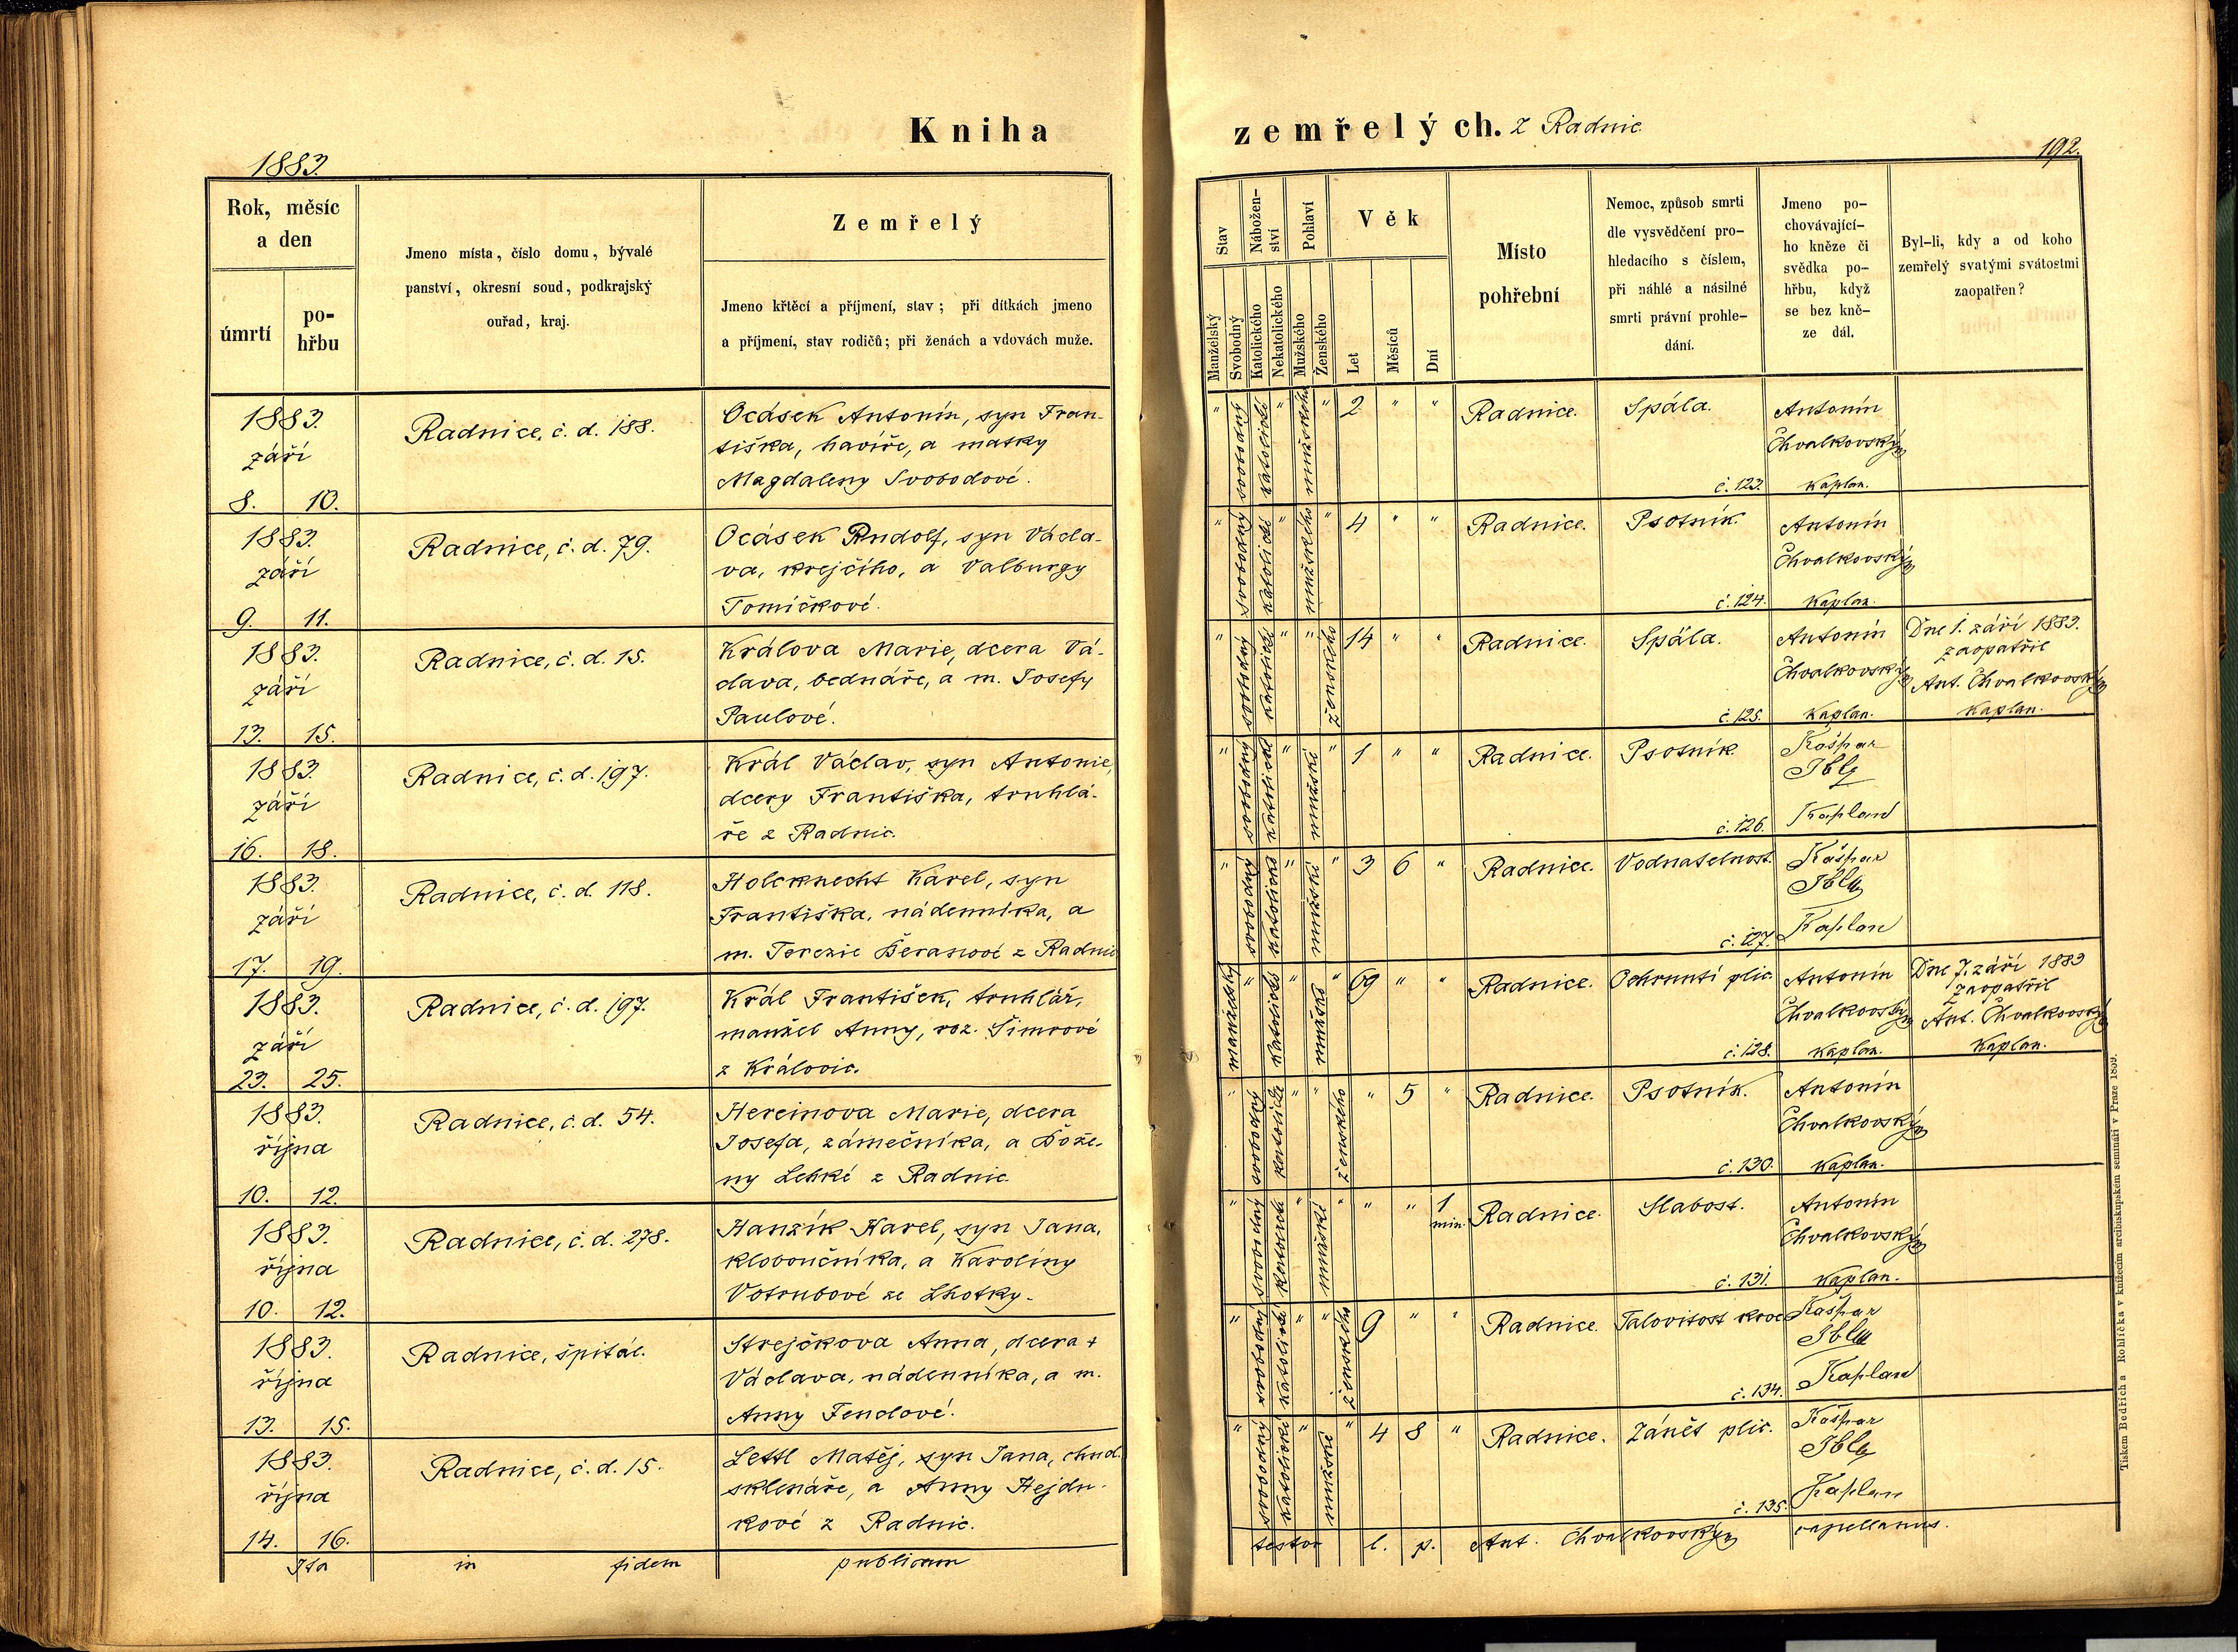 Kniha zemřelých. z Radnic
1883.
192.
Rok, měsíc
a den
úmrtí
po-
hřbu
Jmeno místa, číslo domu, bývalé
panství, okresní soud, podkrajský
ouřad, kraj.
Zemřelý
Jmeno křtěcí a příjmení, stav; při dítkách jmeno
a příjmení, stav rodičů; při ženách a vdovách muže.
Stav
Nábožen-
ství
Pohlaví
Věk
Manželský
Svobodný
Katolického
Nekatolického
Mužského
Ženského
Let
Měsíců
Dní
Místo
pohřební
Nemoc, způsob smrti
dle vysvědčení pro-
hledacího s číslem,
při náhlé a násilné
smrti právní prohle-
dání.
Jmeno po-
chovávající-
ho kněze či
svědka po-
hřbu, když
se bez kně-
ze dál.
Byl-li, kdy a od koho
zemřelý svatými svátostmi
zaopatřen?
1883.
září
8. 10.
Radnice, č. d. 188.
Ocásek Antonín, syn Fran-
tiška, havíře, a matky
Magdaleny Svobodové.
" svobodný katolické " mužského " 2 " "
Radnice.
Spála.
č. 123.
Antonín
Chvalkovský
Kaplan.
1883.
září
9. 11.
Radnice, č. d. 79.
Ocásek Rudolf, syn Václa-
va, krejčího, a Valburgy
Tomíčkové.
" svobodný katolické " mužského " 4 " "
Radnice.
Psotník.
č. 124.
Antonín
Chvalkovský
Kaplan.
1883.
září
13. 15.
Radnice, č. d. 15.
Králova Marie, dcera Vá-
clava, bednáře, a m. Josefy
Paulové.
" svobodný katolické " " ženského 14 " "
Radnice.
Spála.
č. 125.
Antonín
Chvalkovský
Kaplan.
Dne 1. září 1883.
zaopatřil
Ant. Chvalkovský
Kaplan.
1883.
září
16. 18.
Radnice, č. d. 197.
Král Václav, syn Antonie,
dcery Františka, truhlá-
ře z Radnic.
" svobodný katolické " mužské " 1 " "
Radnice.
Psotník.
č. 126.
Kašpar
Ibl
Kaplan
1883.
září
17. 19.
Radnice, č. d. 118.
Holcknecht Karel, syn
Františka, nádenníka, a
m. Terezie Beranové z Radnic
" svobodný katolické " mužské " 3 6 "
Radnice.
Vodnatelnost.
č. 127.
Kašpar
Ibl
Kaplan
1883.
září
23. 25.
Radnice, č. d. 197.
Král František, truhlář,
manžel Anny, roz. Šimrové
z Královic.
manželský " katolické " mužské " 69 " "
Radnice.
Ochrnutí plic
č. 128.
Antonín
Chvalkovský
Kaplan.
Dne 7. září 1883
zaopatřil
Ant. Chvalkovský
Kaplan.
1883.
října
10. 12.
Radnice, č. d. 54.
Hereinova Marie, dcera
Josefa, zámečníka, a Bože-
ny Lehké z Radnic
" svobodný katolické " " ženského " 5 "
Radnice.
Psotník.
č. 130.
Antonín
Chvalkovský
Kaplan.
1883.
října
10. 12.
Radnice, č. d. 278.
Hanzík Karel, syn Jana,
kloboučníka, a Karolíny
Votrubové ze Lhotky.
" svobodný katolické " mužské " " " 1 min.
Radnice.
Slabost.
č. 131.
Antonín
Chvalkovský
Kaplan.
1883.
října
13. 15.
Radnice, špitál.
Strejčkova Anna, dcera +
Václava, nádenníka, a m.
Anny Fendové.
" svobodný katolické " " ženského 9 " "
Radnice.
Jalovitost krve
č. 134.
Kašpar
Ibl
Kaplan
1883.
října
14. 16.
Radnice, č. d. 15.
Lettl Matěj, syn Jana, chud.
sklenáře, a Anny Hejdu-
kové z Radnic.
" svobodný katolické " mužské " 4 8 "
Radnice.
Zánět plic.
č. 135.
Kašpar
Ibl
Kaplan
Ita in fidem publicam testor l. p. Ant. Chvalkovský capellanus.
Tiskem Bedřicha Rohlíčka v knížecím arcibiskupském semináři v Praze 1859.